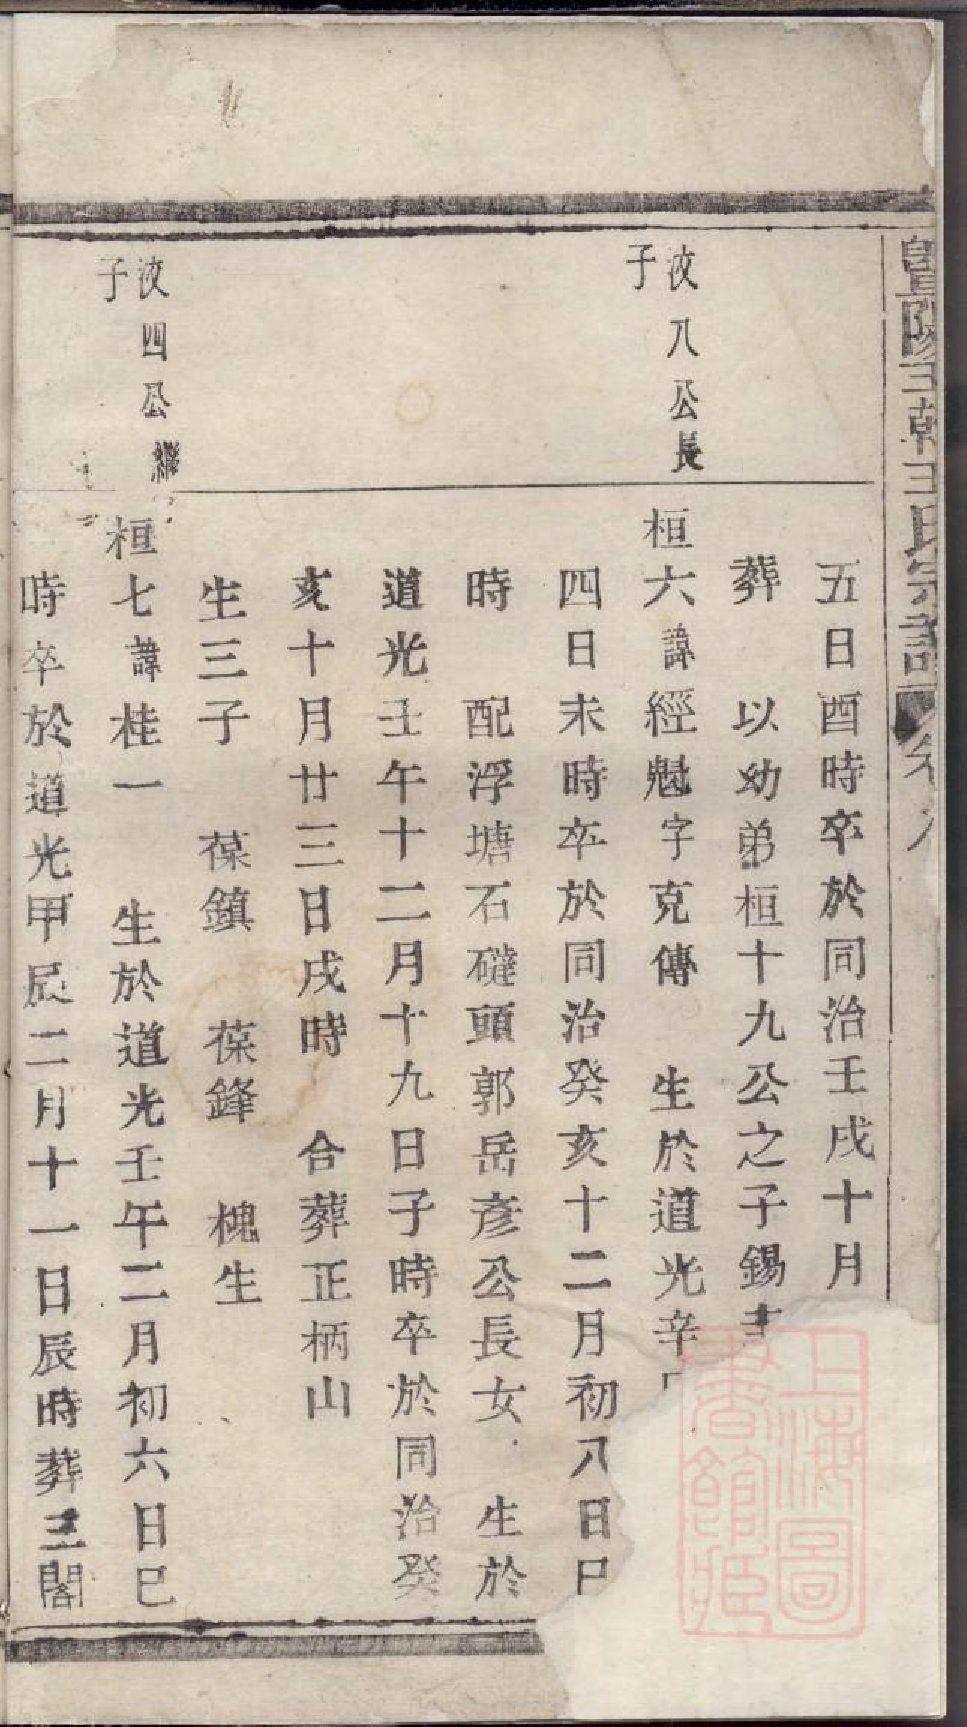 暨陽王韓王氏宗譜 卷八
五日酉時卒於同治壬戌十月
葬 以幼弟桓十九公之子錫
波八公長
子
桓六諱經魁字克傳 生於道光辛
四日未時卒於同治癸亥十二月初八日巳
時 配浮塘石䃮頭郭岳彥公長女 生於
道光壬午十二月十九日子時卒於同治癸
亥十月廿三日戌時 合葬正柄山
生三子 葆鎮 葆鋒 槐生
波四公繼
子
桓七諱桂一 生於道光壬午二月初六日巳
時卒於道光甲辰二月十一日辰時葬三閣
上海圖
書館藏